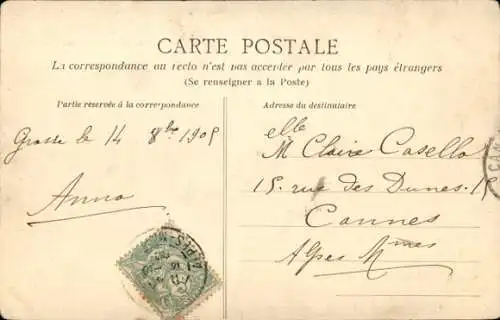 CARTE POSTALE
La correspondance au recto n'est pas acceptée par tous les pays étrangers
(Se renseigner a la Poste)
Partie réservée à la correspondance
Adresse du destinataire
Grasse le 14 8bre 1905
Anna
Melle Claire Casella
15. rue des Dunes. 15
Cannes
Alpes Mmes
ALPES-M
CAN